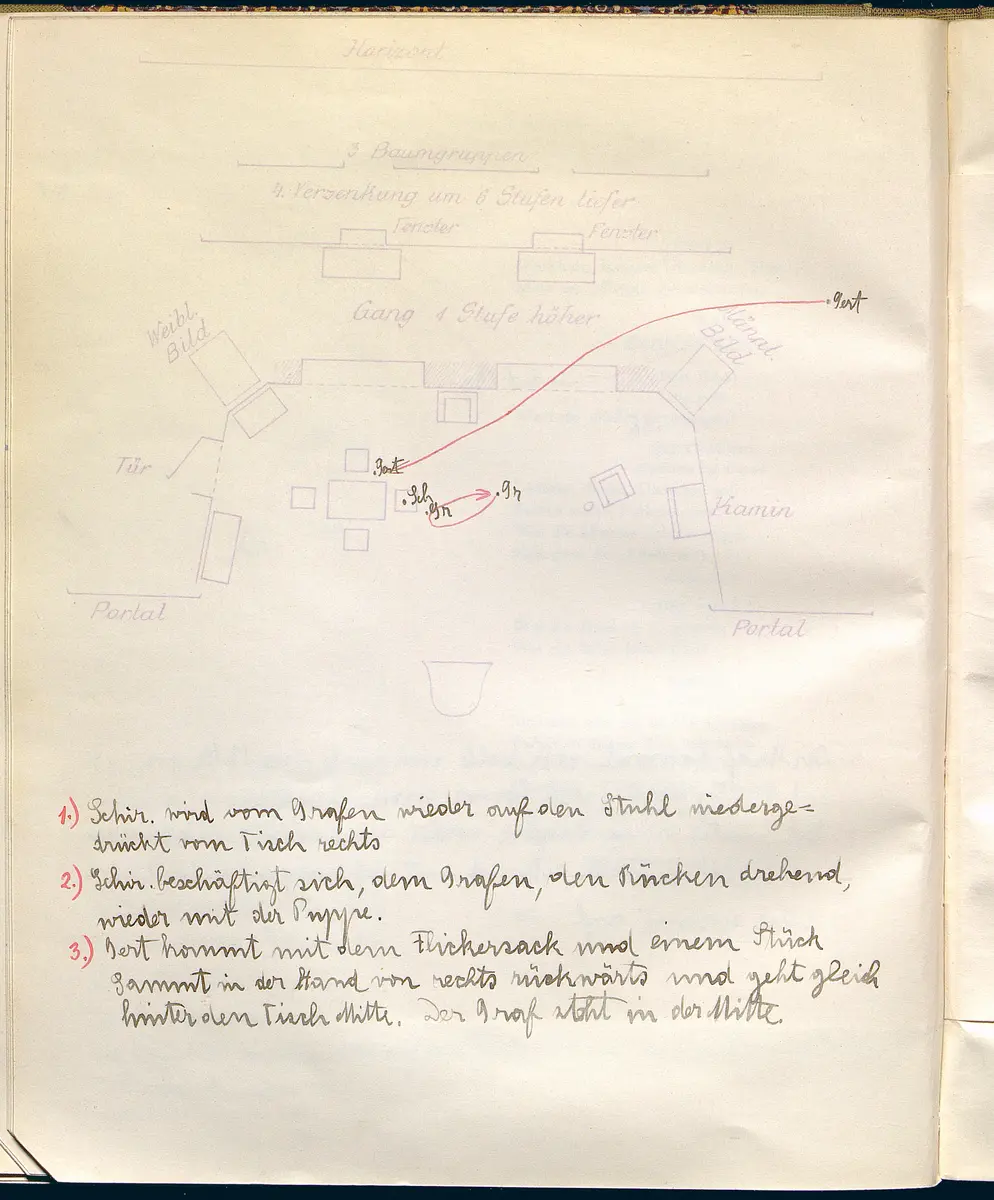 Horizont
3 Baumgruppen
4. Versenkung um 6 Stufen tiefer
Fenster
Fenster
Gang 1 Stufe höher
.Gert
Weibl.
Bild
Männl.
Bild
Tür
.Gert
.Sch
.Gr
.Gr
Kamin
Portal
Portal
1.) Schir. wird vom Grafen wieder auf den Stuhl niederge=
drückt vom Tisch rechts
2.) Schir. beschäftigt sich, dem Grafen, den Rücken drehend,
wieder mit der Puppe.
3.) Gert kommt mit dem Flickersack und einem Stück
Sammt in der Hand von rechts rückwärts und geht gleich
hinter den Tisch Mitte. Der Graf steht in der Mitte.